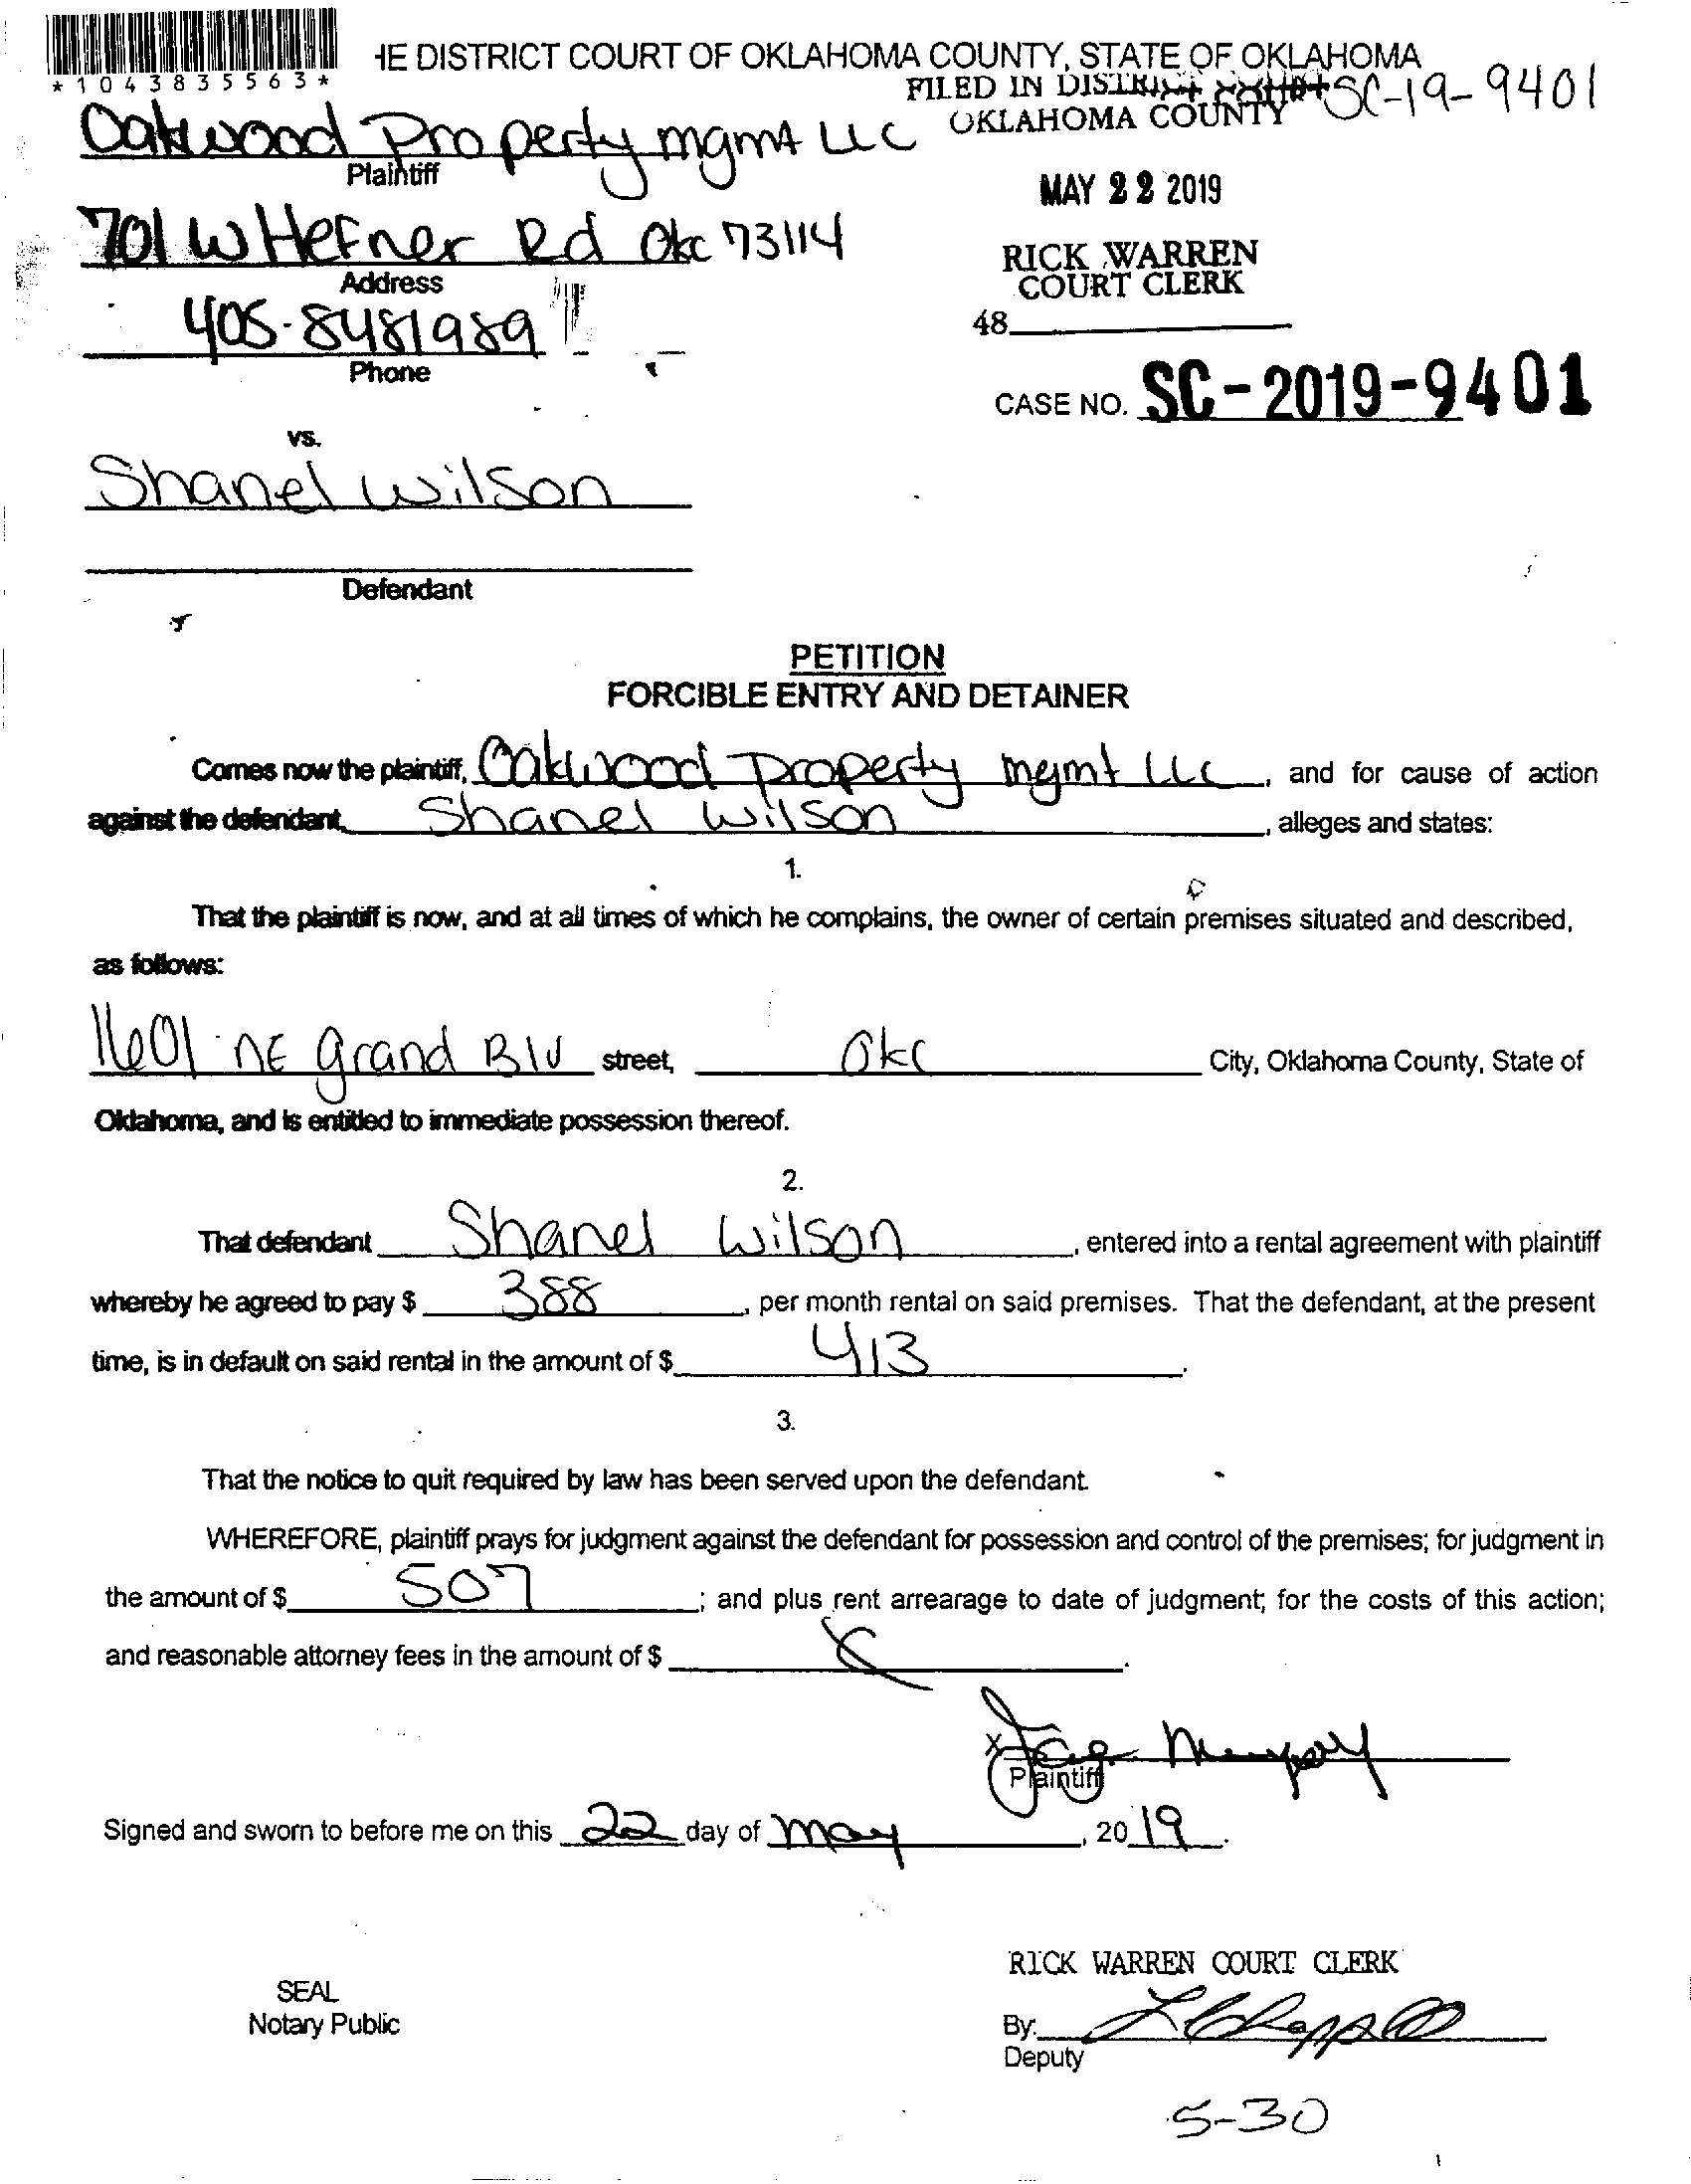 *1043835563*
HE DISTRICT COURT OF OKLAHOMA COUNTY, STATE OF OKLAHOMA
FILED IN DISTRICT COURT SC-19-9401
OKLAHOMA COUNTY
Oakwood Property mgmt LLC
Plaintiff
MAY 22 2019
701 W Hefner Rd Okc 73114
Address
RICK WARREN
COURT CLERK
405-8481989
Phone
48
CASE NO. SC-2019-9401
vs.
Shanel Wilson
Defendant
PETITION
FORCIBLE ENTRY AND DETAINER
Comes now the plaintiff, Oakwood Property mgmt LLC, and for cause of action
against the defendant, Shanel Wilson, alleges and states:
1.
That the plaintiff is now, and at all times of which he complains, the owner of certain premises situated and described,
as follows:
1601 NE grand Blv street, Okc City, Oklahoma County, State of
Oklahoma, and is entitled to immediate possession thereof.
2.
That defendant Shanel Wilson, entered into a rental agreement with plaintiff
whereby he agreed to pay $ 388, per month rental on said premises. That the defendant, at the present
time, is in default on said rental in the amount of $ 413.
3.
That the notice to quit required by law has been served upon the defendant.
WHEREFORE, plaintiff prays for judgment against the defendant for possession and control of the premises; for judgment in
the amount of $ 507; and plus rent arrearage to date of judgment; for the costs of this action;
and reasonable attorney fees in the amount of $
X
Plaintiff
Signed and sworn to before me on this 22 day of May, 2019.
RICK WARREN COURT CLERK
SEAL
Notary Public
By:
Deputy
5-30